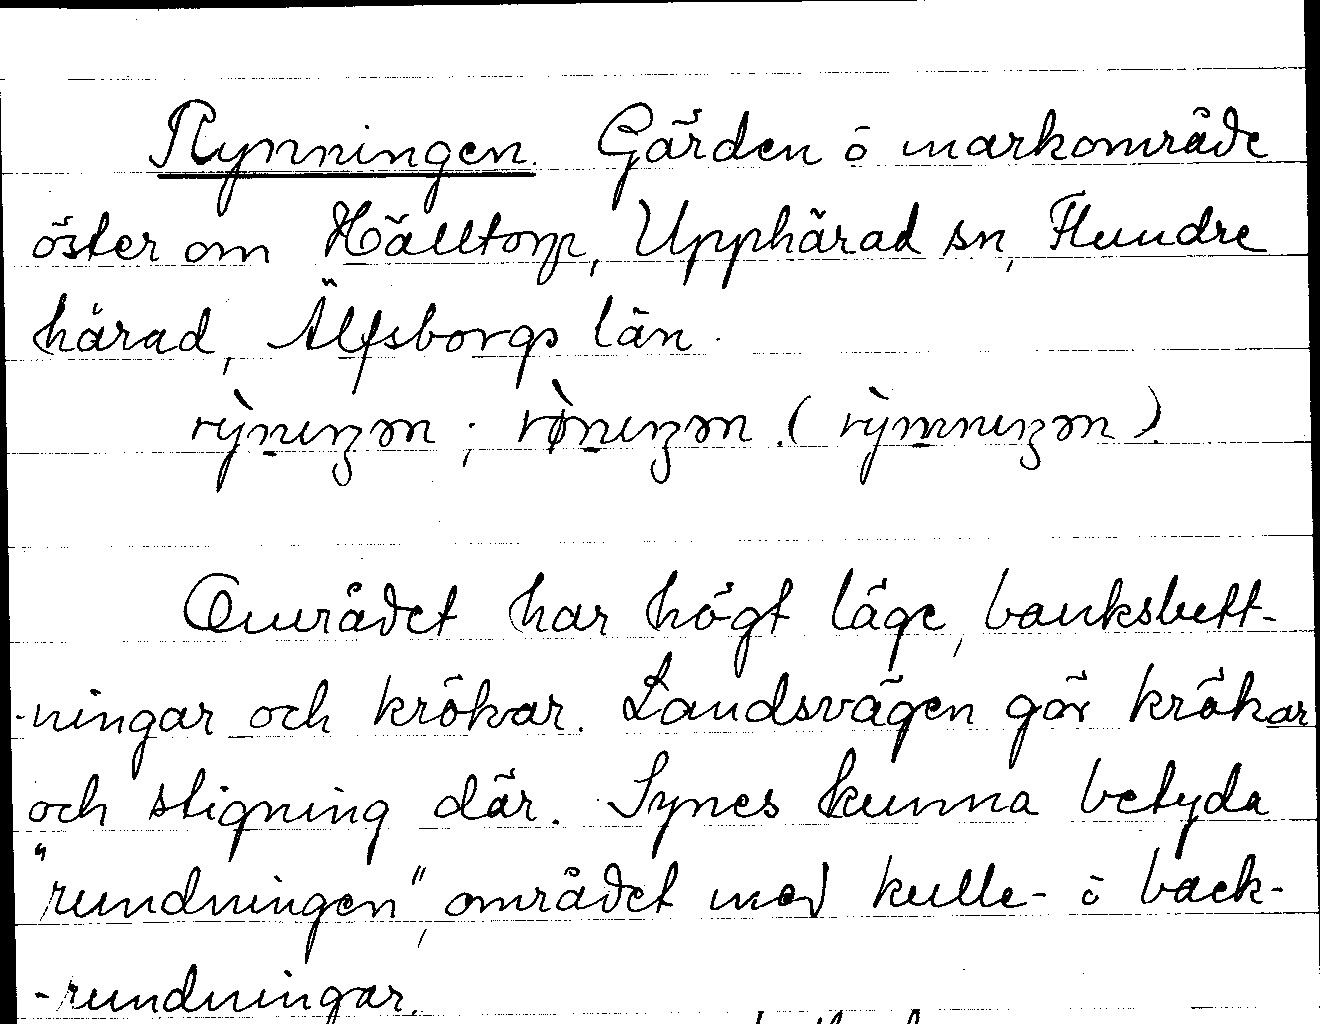 Rynningen. Gården ö markområde
öster om Hälltorp, Upphärad sn, Flundre
härad, Älfsborgs län.
rỳnıŋən ; rø̀nıŋən . ( rỳmnıŋən ).
Området har högt läge, banksbutt-
-ningar och krökar. Landsvägen gör krökar
och stigning där. Synes kunna betyda
"rundningen", området med kulle- ö back-
-rundningar.